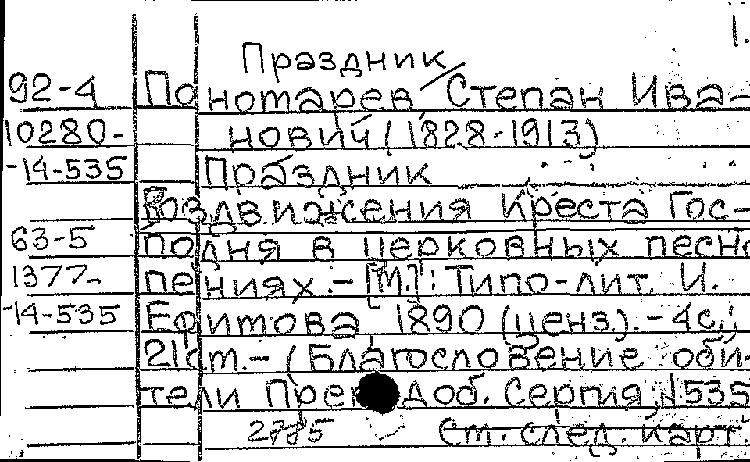 1.
Праздник
92-4 Пономарев Степан Ива-
10280- нович (1828-1913)
-14-535 Праздник
Воздвижения Креста Гос-
63-5 подня в церковных песно
1377- пениях.-[М.]: Типо-лит. И.
-14-535 Ефимова 1890 (ценз).-4с.;
21см.- (Благословение оби-
тели Преподоб. Сергия, №535
2775 См. след. карт.